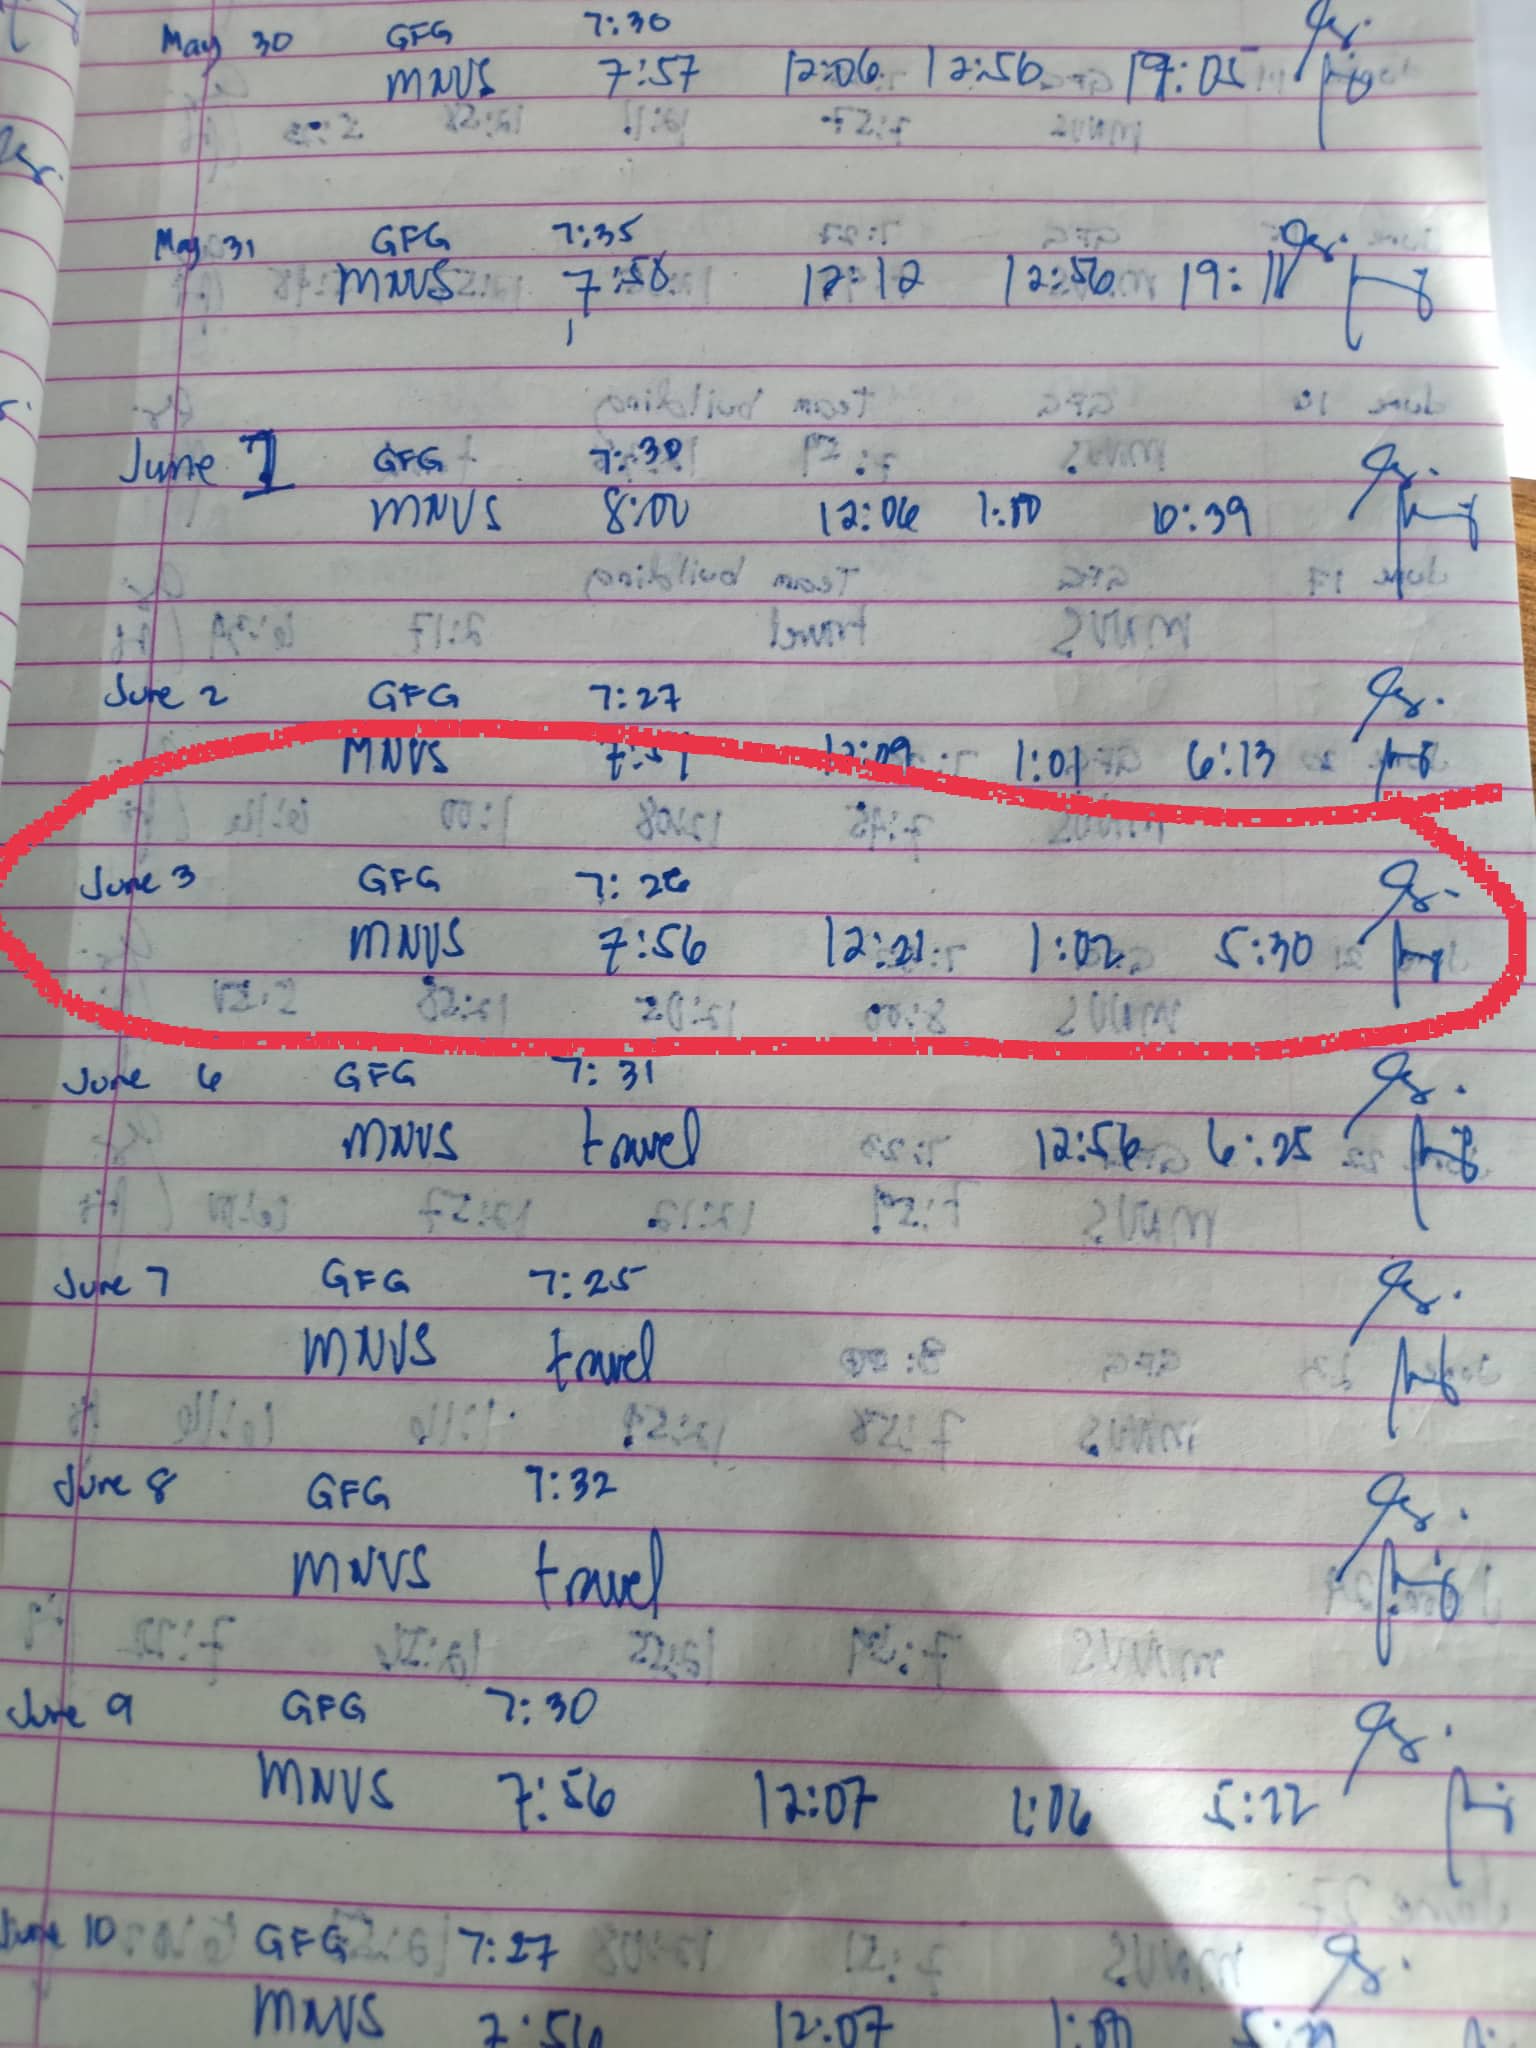 May 30 GFG 7:30
MNVS 7:57 12:06 12:56 19:05
May 31 GFG 7:35
MNVS 7:58 12:12 12:56 19:11
June 1 GFG 7:30
MNVS 8:00 12:06 1:00 6:39
June 2 GFG 7:27
MNVS 7:51 12:09 1:01 6:13
June 3 GFG 7:26
MNVS 7:56 12:21 1:02 5:30
June 6 GFG 7:31
MNVS travel 12:56 6:25
June 7 GFG 7:25
MNVS travel
June 8 GFG 7:32
MNVS travel
June 9 GFG 7:30
MNVS 7:56 12:07 1:06 5:22
June 10 GFG 7:27
MNVS 7:56 12:07 1:00